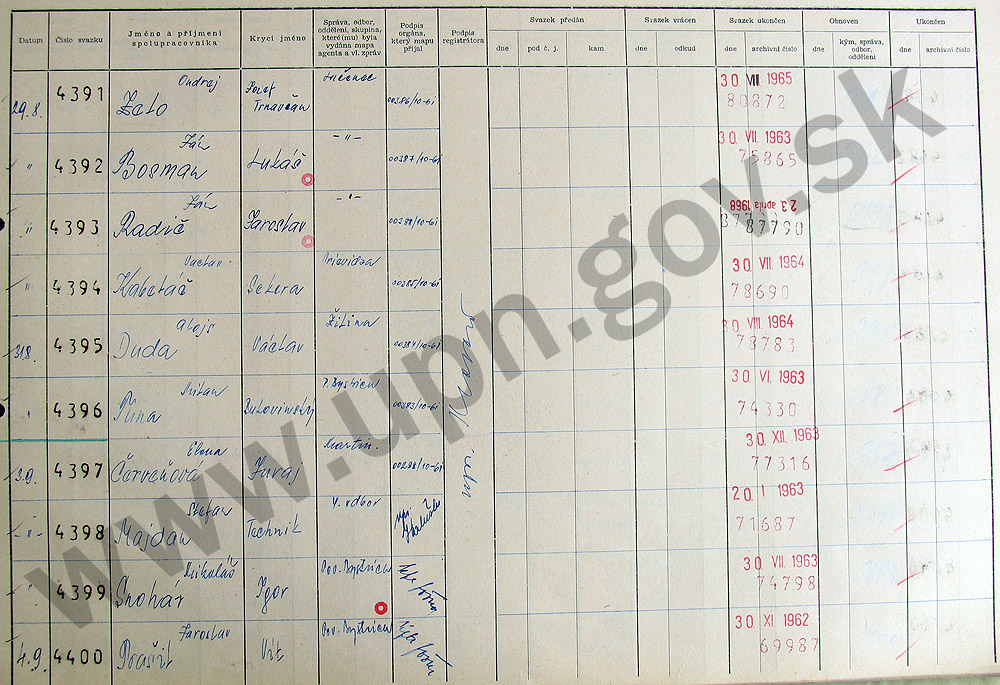 Datum
Číslo svazku
Jméno a příjmení spolupracovníka
Krycí jméno
Správa, odbor, oddělení, skupina, které(mu) byla vydána mapa agenta a vl. zpráv
Podpis orgána, který mapu přijal
Podpis registrátora
Svazek předán
dne
pod č. j.
kam
Svazek vrácen
dne
odkud
Svazek ukončen
dne
archivní číslo
Obnoven
dne
kým, správa, odbor, oddělení
Ukončen
dne
archivní číslo
29.8. 4391 Ondrej Jozef Trnavčan 00386/10-61 30 VII 1965 80872
" 4392 Ján Bosman Lukáš - " - 00387/10-61 30. VII. 1963 75865
" 4393 Ján Radič Jaroslav - " - 00388/10-61 23. apríla 1968 87790
" 4394 Václav Sekera Prievidza 00385/10-61 30. VII. 1964 78690
31.8. 4395 Alojz Duda Václav Žilina 00384/10-61 30 VIII. 1964 78783
" 4396 Milan Bukovinský P. Bystrica 00383/10-61 30 VI. 1963 74330
3.9. 4397 Elena Červeňová Juraj Martin 00298/10-61 30. XII. 1963 77316
- " - 4398 Štefan Majdan Technik V. odbor 20. I 1963 71687
" 4399 Mikuláš Snohár Igor Pov. Bystrica 30 VII. 1963 74798
4.9. 4400 Jaroslav Prašil Vít Pov. Bystrica 30 XI 1962 69987
www.upn.gov.sk